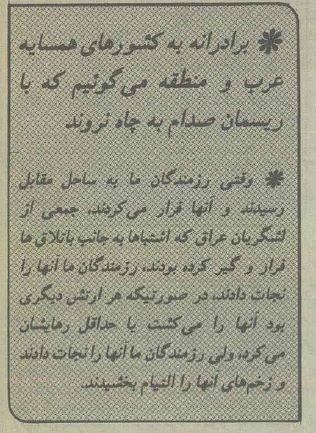 * برادرانه به کشورهای همسایه
عرب و منطقه می‌گوئیم که با
ریسمان صدام به چاه نروند
* وقتی رزمندگان ما به ساحل مقابل
رسیدند و آنها فرار می‌کردند، جمعی از
لشگریان عراق که اشتباها به جانب باتلاق ها
فرار و گیر کرده بودند، رزمندگان ما آنها را
نجات دادند، در صورتیکه هر ارتش دیگری
بود آنها را می‌کشت یا حداقل رهایشان
می‌کرد، ولی رزمندگان ما آنها را نجات دادند
و زخم‌های آنها را التیام بخشیدند.